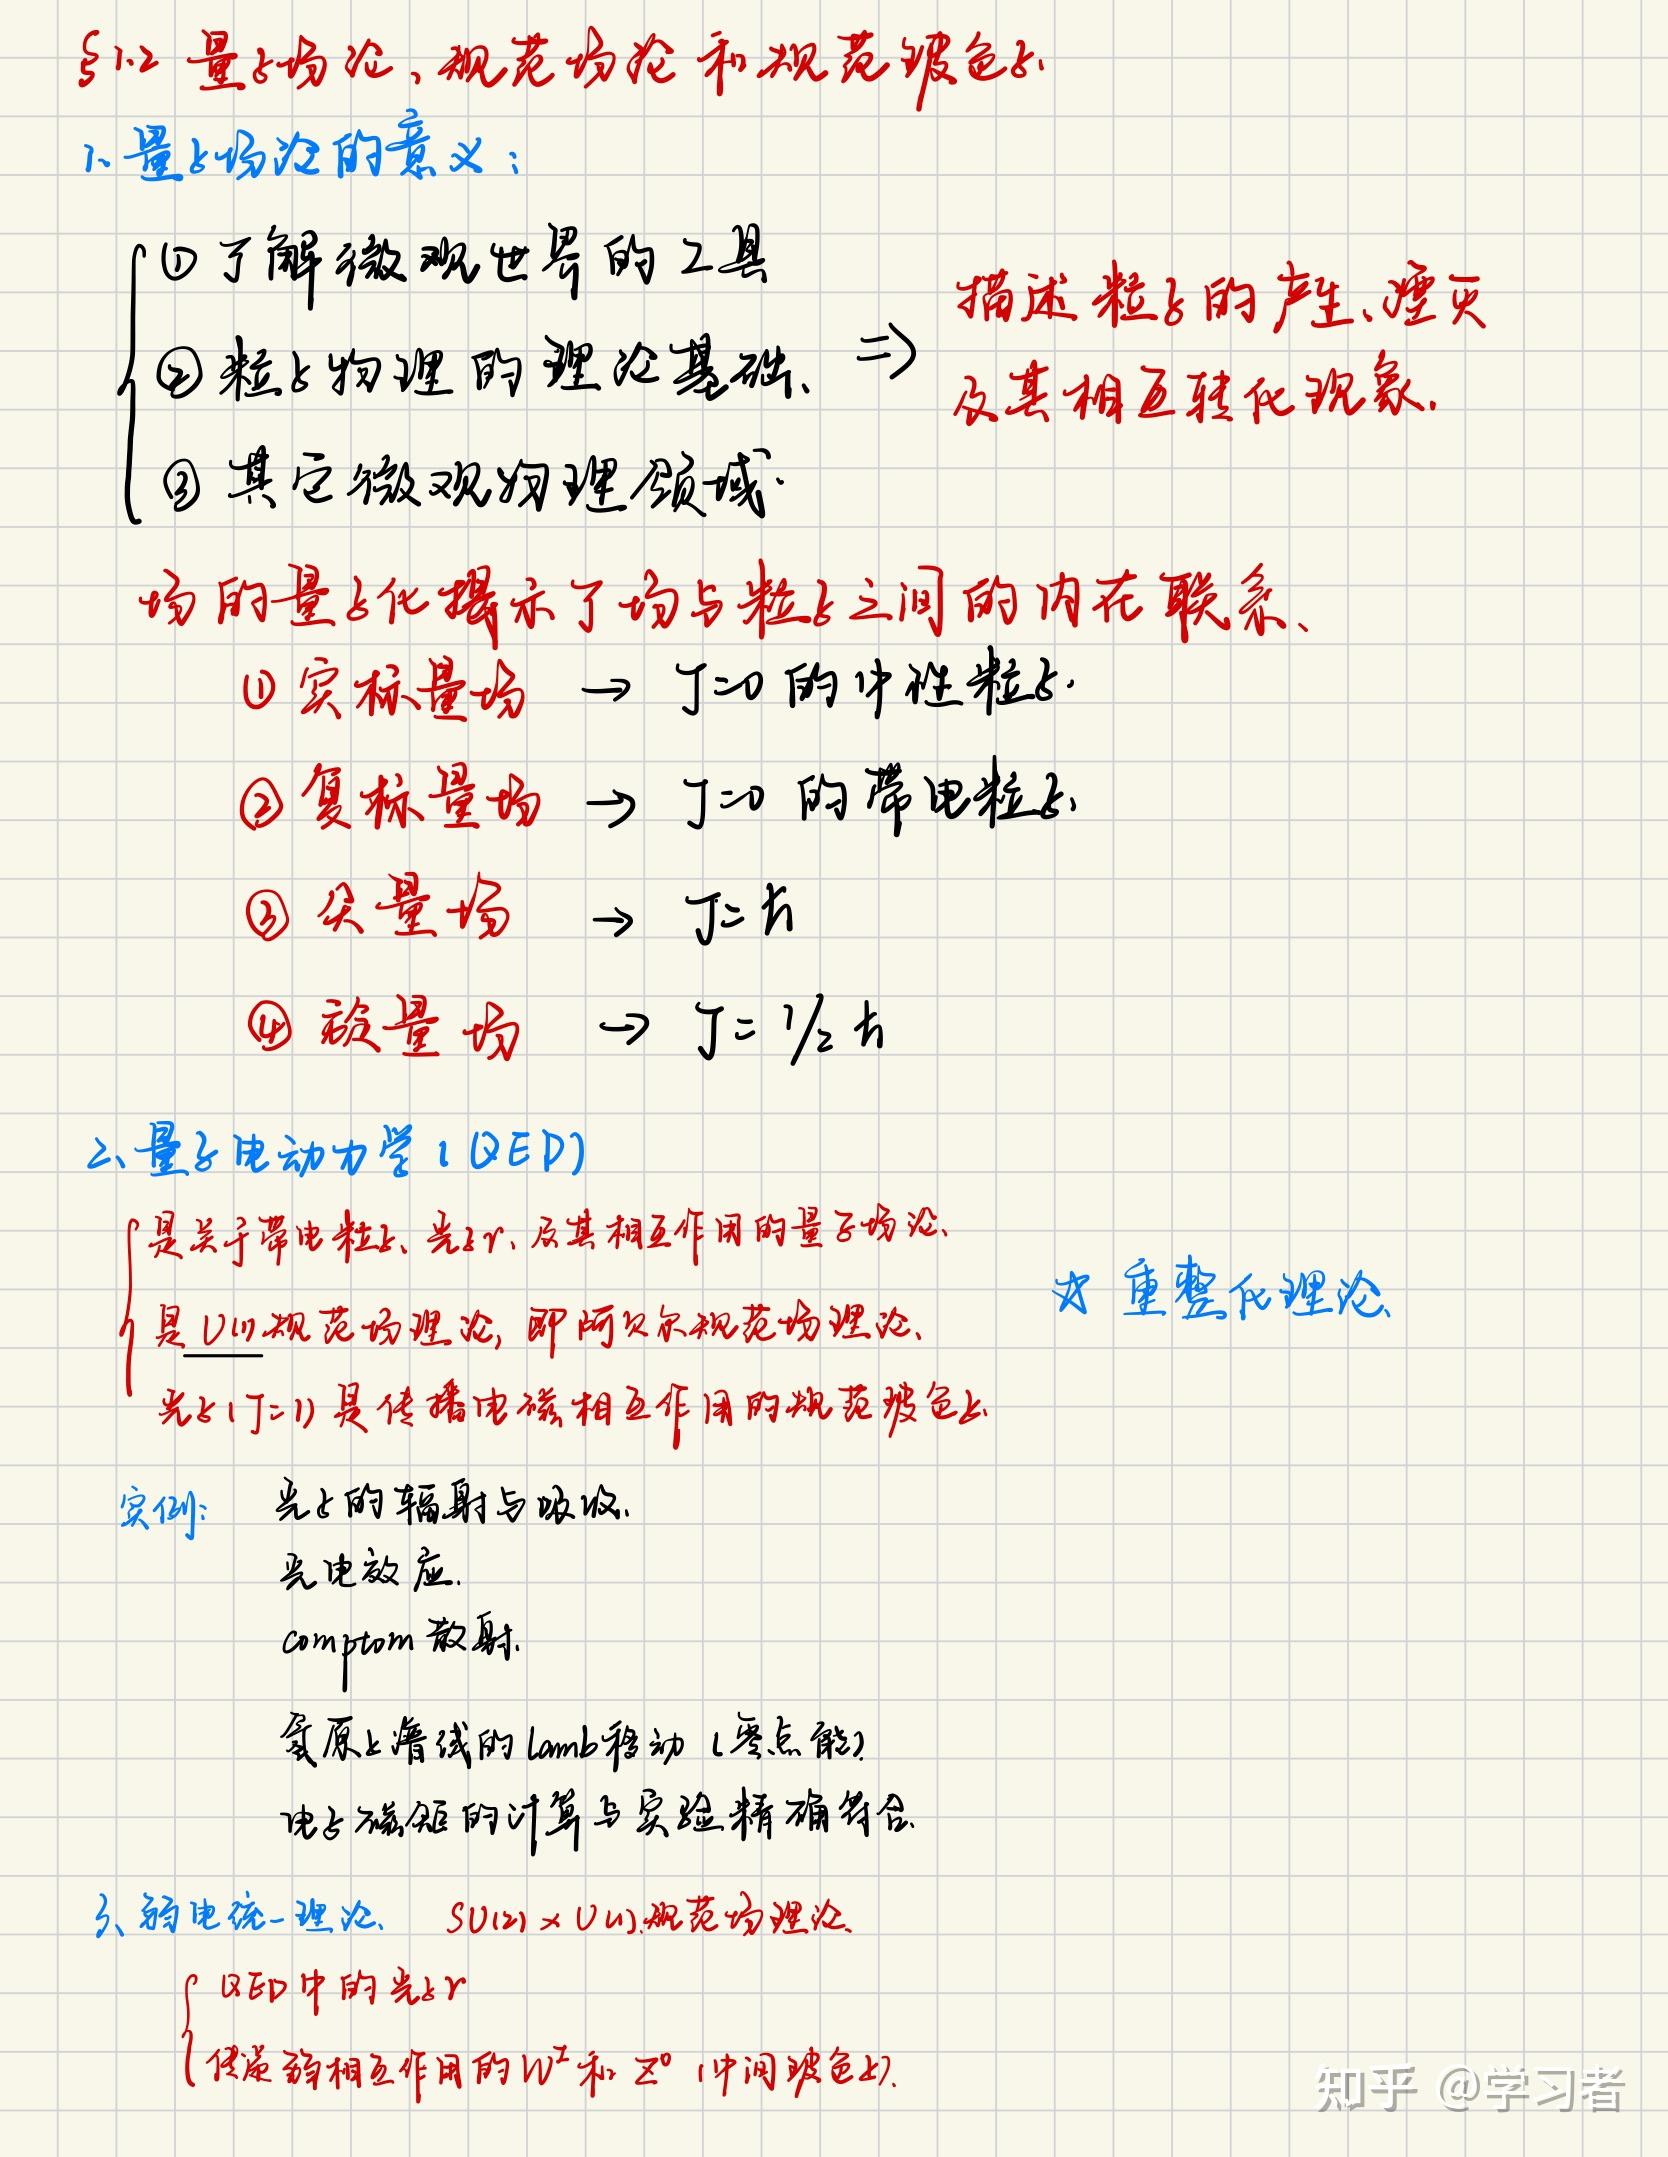 §1.2 量子场论、规范场论和规范玻色子.
1、量子场论的意义：
① 了解微观世界的工具
② 粒子物理的理论基础、
③ 其它微观物理领域.
⇒ 描述粒子的产生、湮灭
及其相互转化现象.
场的量子化揭示了场与粒子之间的内在联系、
① 实标量场 → J=0 的中性粒子.
② 复标量场 → J=0 的带电粒子.
③ 矢量场 → J=ħ
④ 旋量场 → J=1/2 ħ
2、量子电动力学 (QED)
是关于带电粒子、光子γ、及其相互作用的量子场论、
是U(1)规范场理论, 即阿贝尔规范场理论、
☆ 重整化理论、
光子(J=1)是传播电磁相互作用的规范玻色子.
实例: 光子的辐射与吸收.
光电效应.
comptom 散射.
氢原子谱线的Lamb移动(零点能)
电子磁矩的计算与实验精确符合.
3、弱电统一理论、 SU(2)×U(1)规范场理论、
QED中的光子γ
传递弱相互作用的W± 和 Z⁰ (中间玻色子).
知乎 @学习者